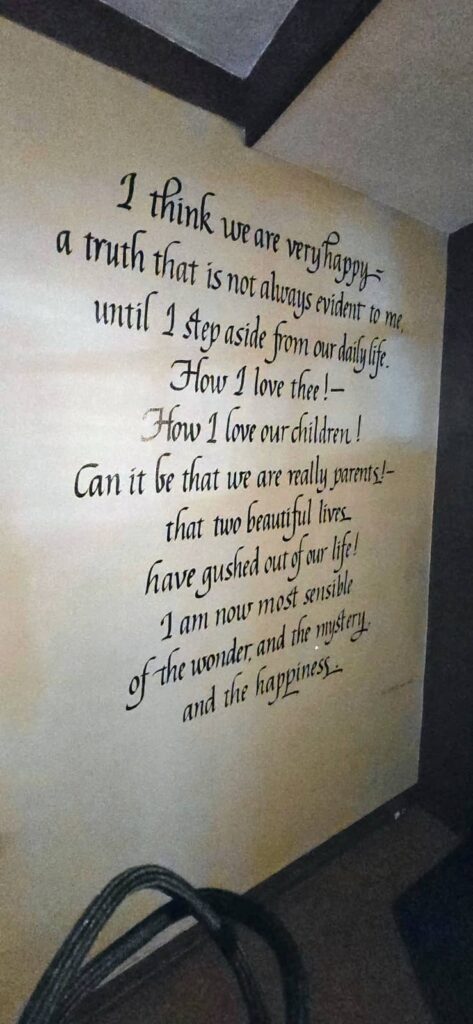 I think we are very happy –
a truth that is not always evident to me,
until I step aside from our daily life.
How I love thee! –
How I love our children!
Can it be that we are really parents! –
that two beautiful lives
have gushed out of our life!
I am now most sensible
of the wonder, and the mystery,
and the happiness.